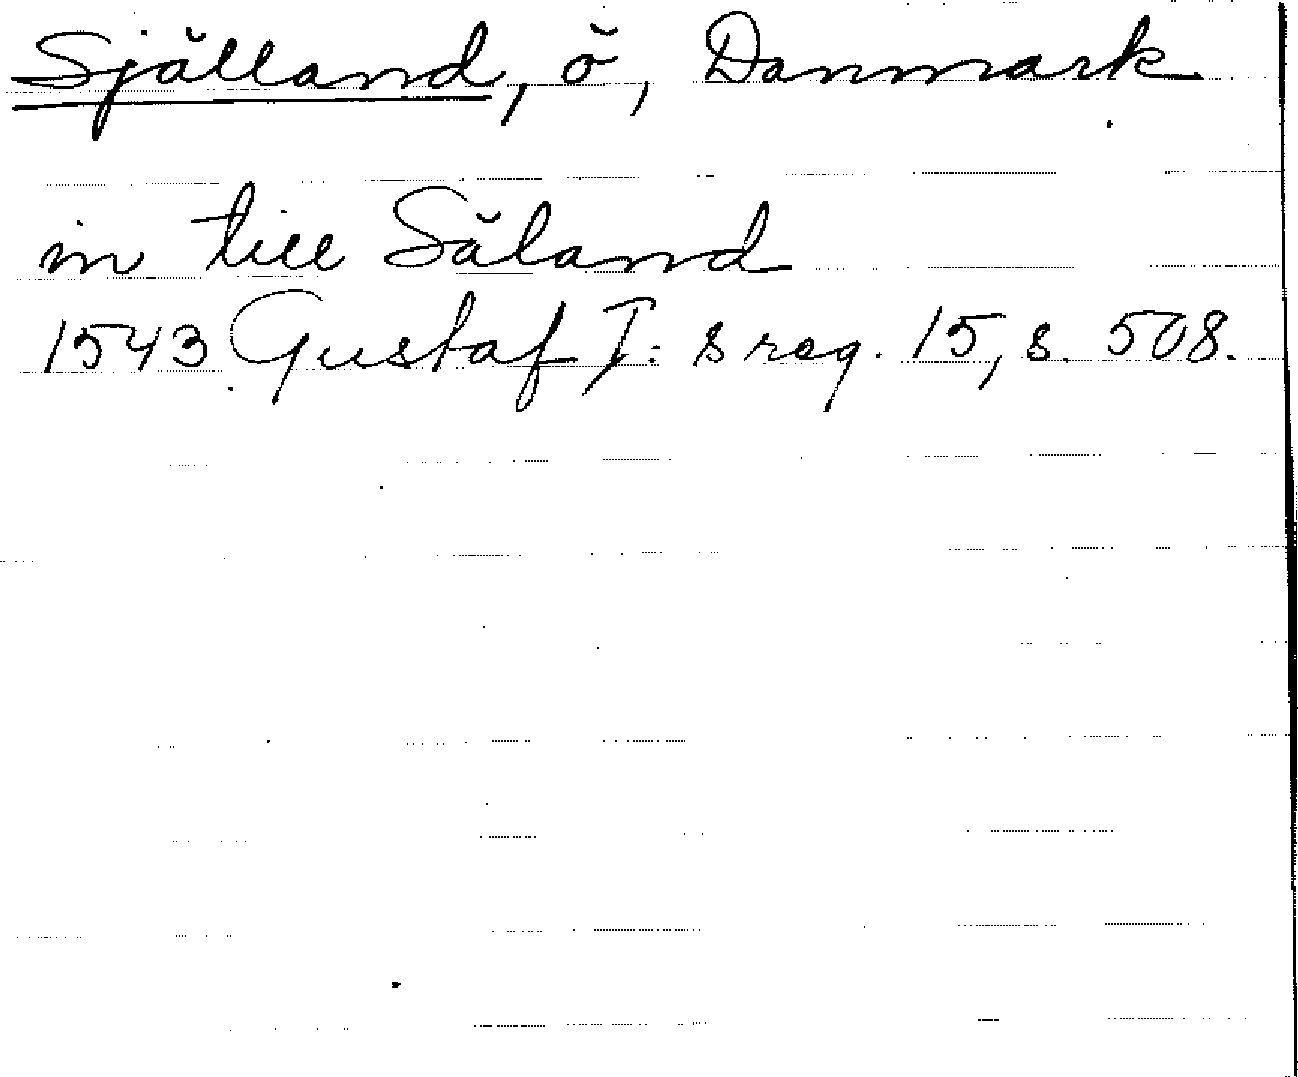 Själland, ö, Danmark
in till Säland
1543 Gustaf I: s reg. 15, s. 508.